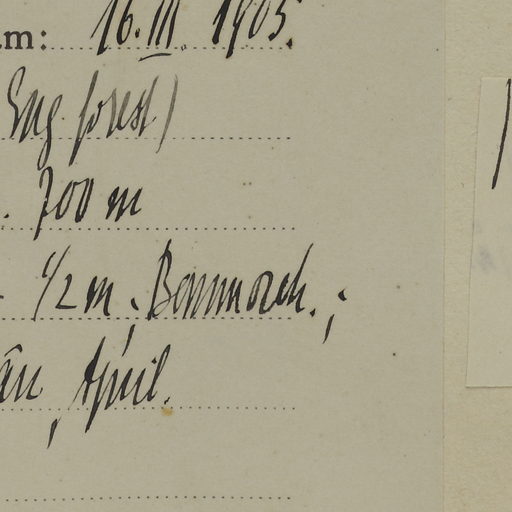 m: 16. III. 1905.
Eng. forest)
. 700 m
1/2 m; Baummoch.;
än, April.